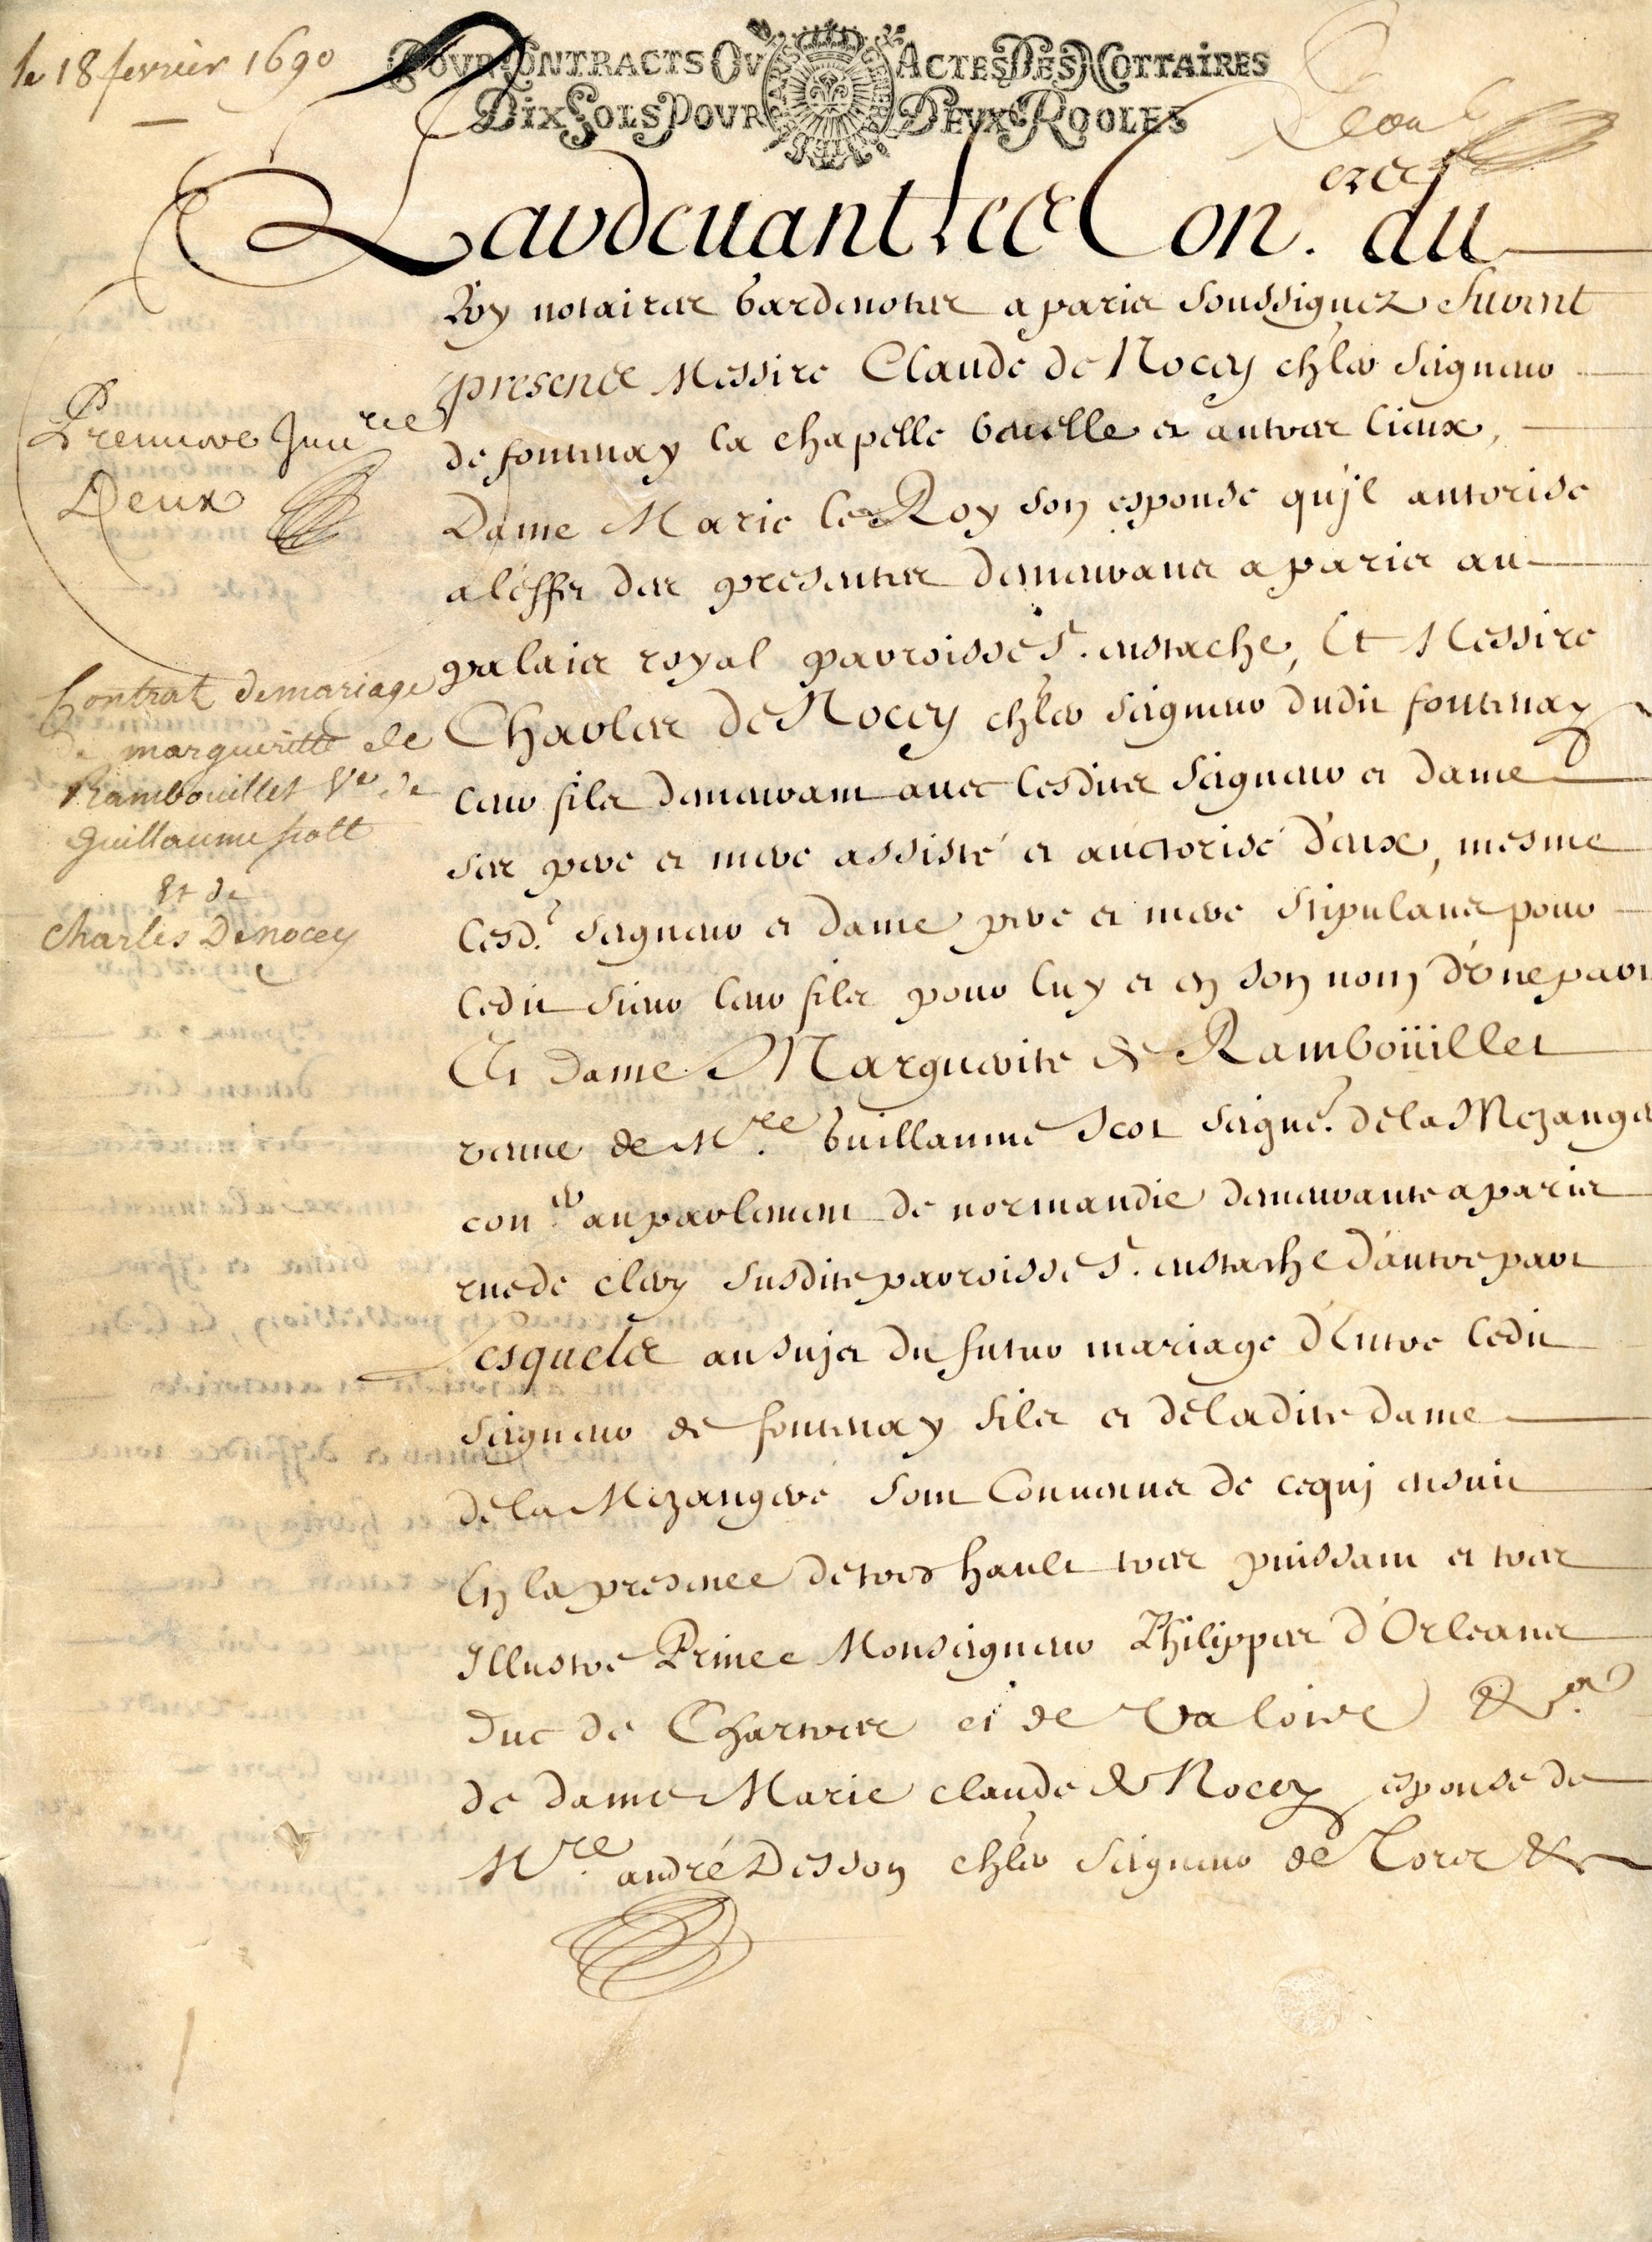 le 18 fevrier 1690
POUR CONTRACTS OU ACTES DES NOTTAIRES
DIX SOLS POUR DEUX ROOLES
Pardeuant les Con.ers du
Roy notaires gardenottes a paris soussignez furent
presens Messire Claude de Nocey ch.ler Seigneur
de fontenay la chapelle et autres lieux,
Dame Marie le Roy son espouse qu'jl autorise
a l'effet des presentes demeurans a paris au
palais royal parroisse St. eustache, Et Messire
Charles de Nocey ch.ler Seigneur dudit fontenay
leur fils demeurant auec lesdits Seigneur et dame
ses pere et mere assisté et auctorisé d'eux, mesme
lesd.s Seigneur et dame pere et mere stipulans pour
ledit sieur leur fils pour luy et en son nom d'vne part
Et Dame Marguerite de Rambouillet
veuue de M.re Guillaume Scot Seigne.r de la Mezangere
con.er au parlement de normandie demeurante a paris
rue de clery susdite parroisse St. eustache d'autre part
Lesquels au sujet du futur mariage d'Entre ledit
Seigneur de fontenay fils et de ladite dame
de la Mezangere sont Conuenus de cequj ensuit
En la presence de tres hault tres puissant et tres
Illustre Prince Monseigneur Philippes d'Orleans
Duc de Chartres et de Valois &.a
de dame Marie claude de Nocey espouse de
M.re andré Desson ch.ler Seigneur de Torcé &
Premiere Gun.re
Deux
Contrat de mariage
de margueritte de
Rambouillet Ve de
Guillaume scott
Et de
Charles De nocey